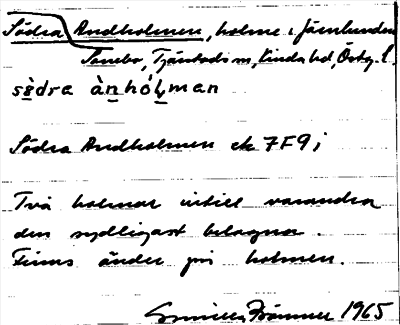 Södra Andholmen, holme i Järnlunden
Tjärstads sn, Kinda hd, Östg. l.
sö̀dra àn̲hól̲man
Södra Andholmen ek 7F9i
Två holmar intill varandra
den sydligast belägna.
Finns änder på holmen.
Gunilla Främner 1965